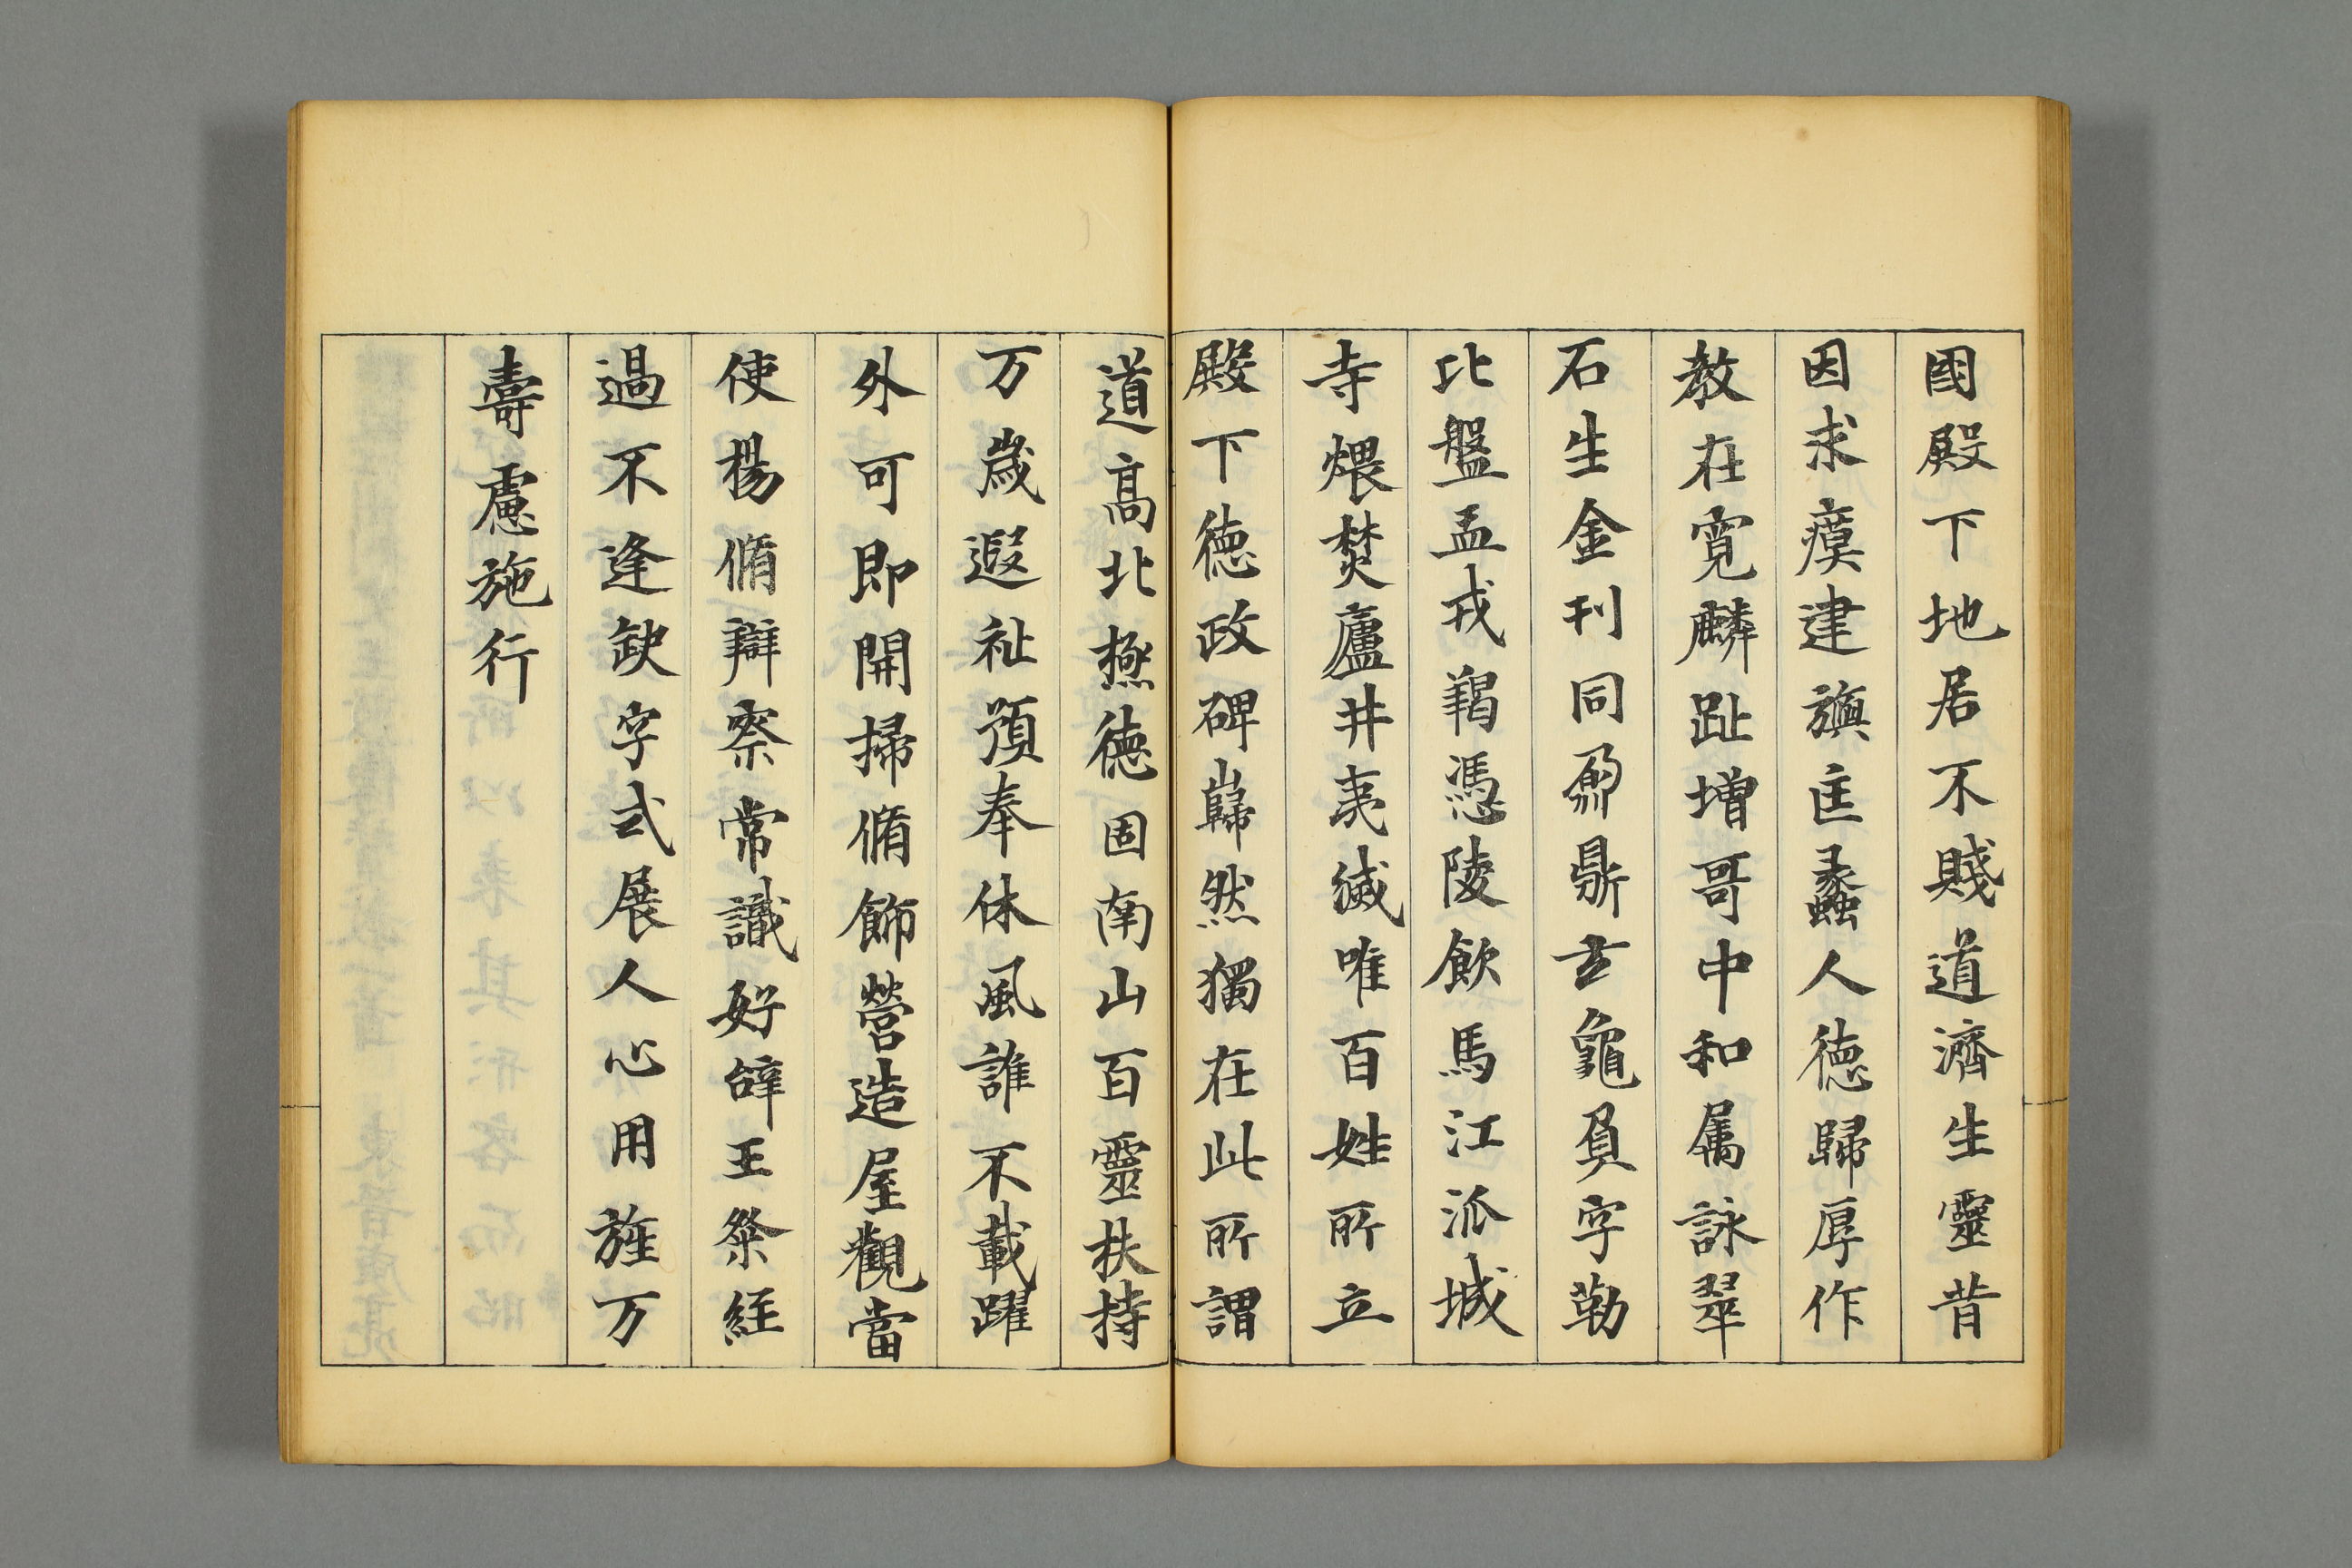 國殿下地居不賤道濟生靈昔
因求瘼建旟匡蠡人德歸厚作
教在寛麟趾增哥中和属詠翠
石生金刊同鼏鼎玄龜負字勒
比盤盂戎羯憑陵飲馬江派城
寺煨焚廬井夷滅唯百姓所立
殿下德政碑巋然獨在此所謂
道髙北極德固南山百靈扶持
万歲遐祉預奉休風誰不載躍
外可即開掃脩飾營造屋觀當
使楊脩辯察常識好辝王粲経
過不逢缺字式展人心用旌万
壽慮施行